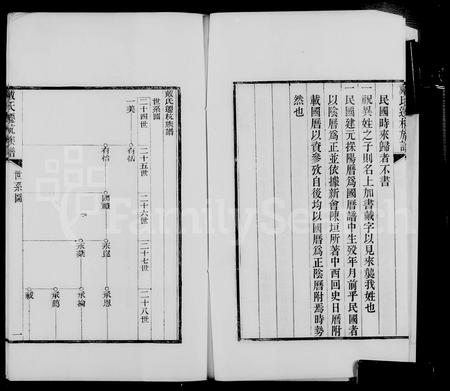 民國時來歸者不書
一祝異姓之子則名上加書戴字以見來襲我姓也
一民國建元採陽曆爲國曆譜中生歿年月前乎民國者
以陰曆爲正並依據新會陳垣所著中西回史日曆附
載國曆以資參攷自後均以國曆爲正陰曆附焉時勢
然也
戴氏遷杭族譜
戴氏遷杭族譜
世系圖
二十四世
二十五世
二十六世
二十七世
二十八世
一美
有恬
有怡
國順
承恩
承綸
承爵
戴氏遷杭族譜
世系圖
一
FamilySearch